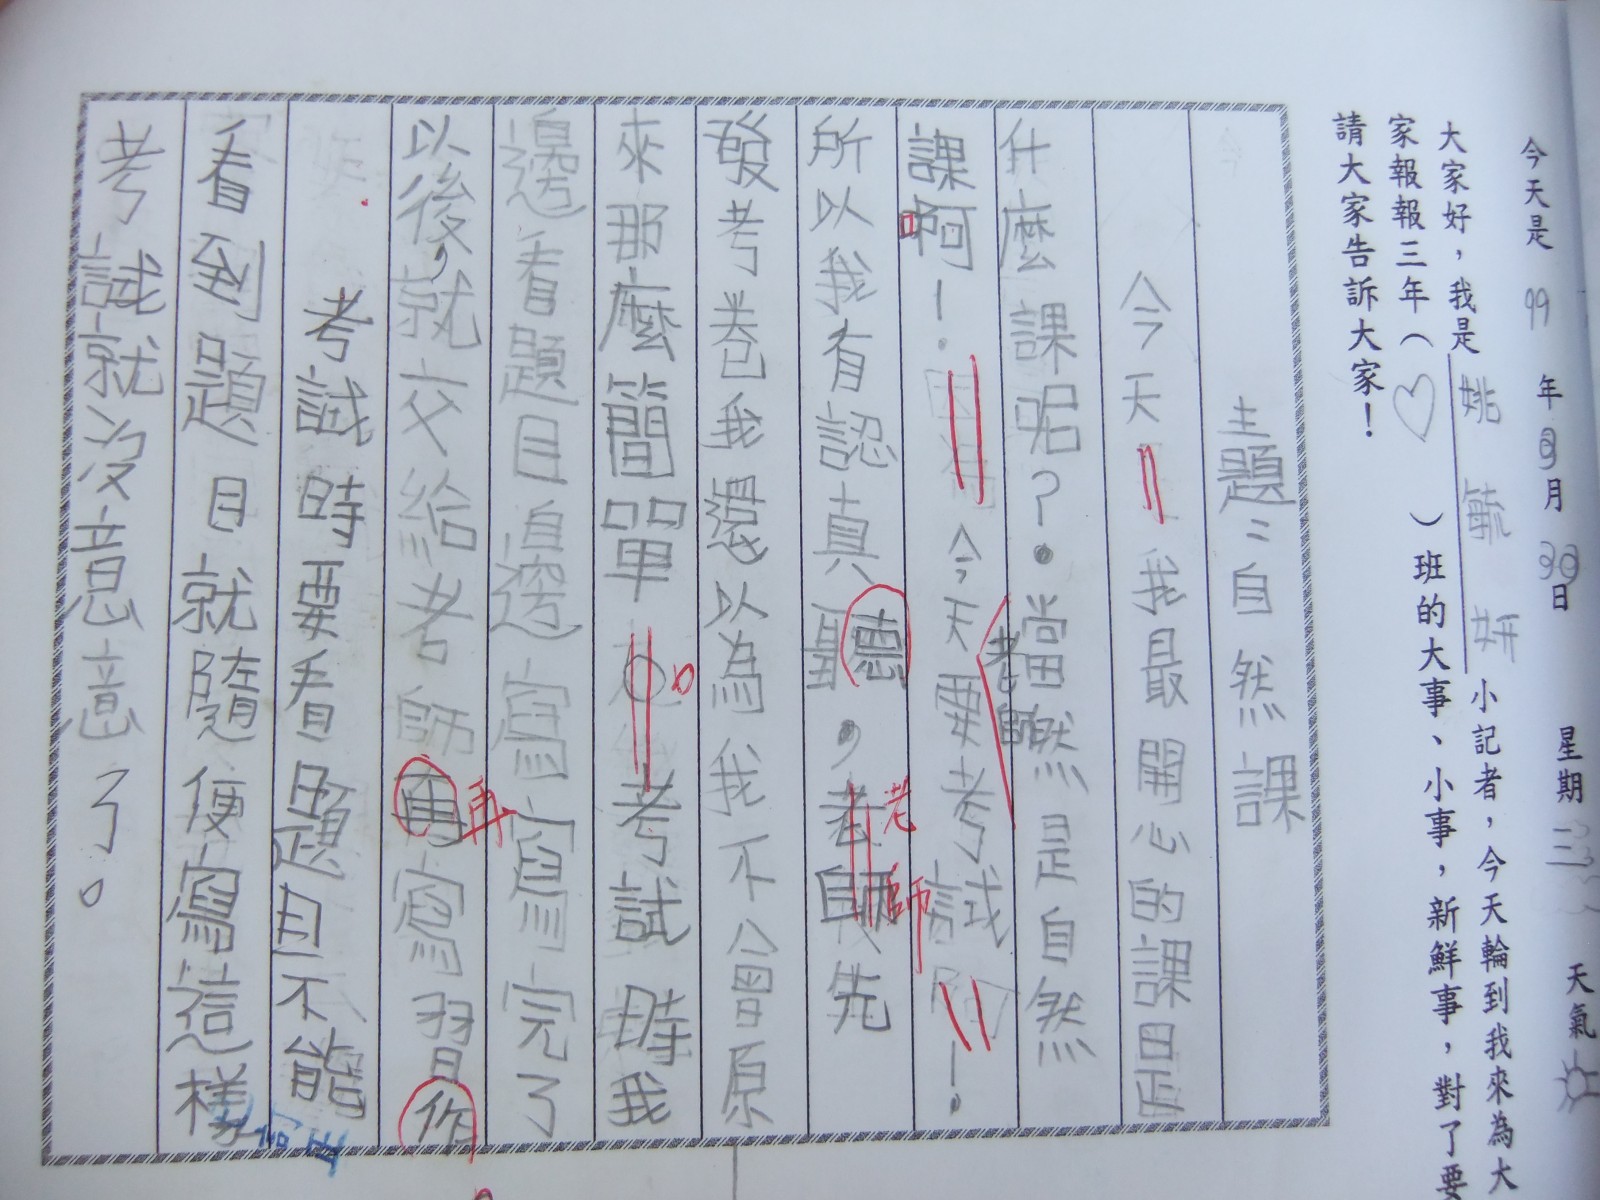 今天是 99 年 9 月 30 日 星期 三 天氣
大家好，我是 姚毓妍 小記者，今天輪到我來為大
家報報三年（♡）班的大事、小事，新鮮事，對了要
請大家告訴大家！
主題：自然課
今天我最開心的課是
什麼課呢？當然是自然
課啊！今天老師要考試！
所以我有認真聽，老師先
發考卷我還以為我不會原
來那麼簡單。考試時我
邊看題目邊寫寫完了
以後，就交給老師再寫習作
考試時要看題目不能
看到題目就隨便寫這樣
考試就沒意思意了。